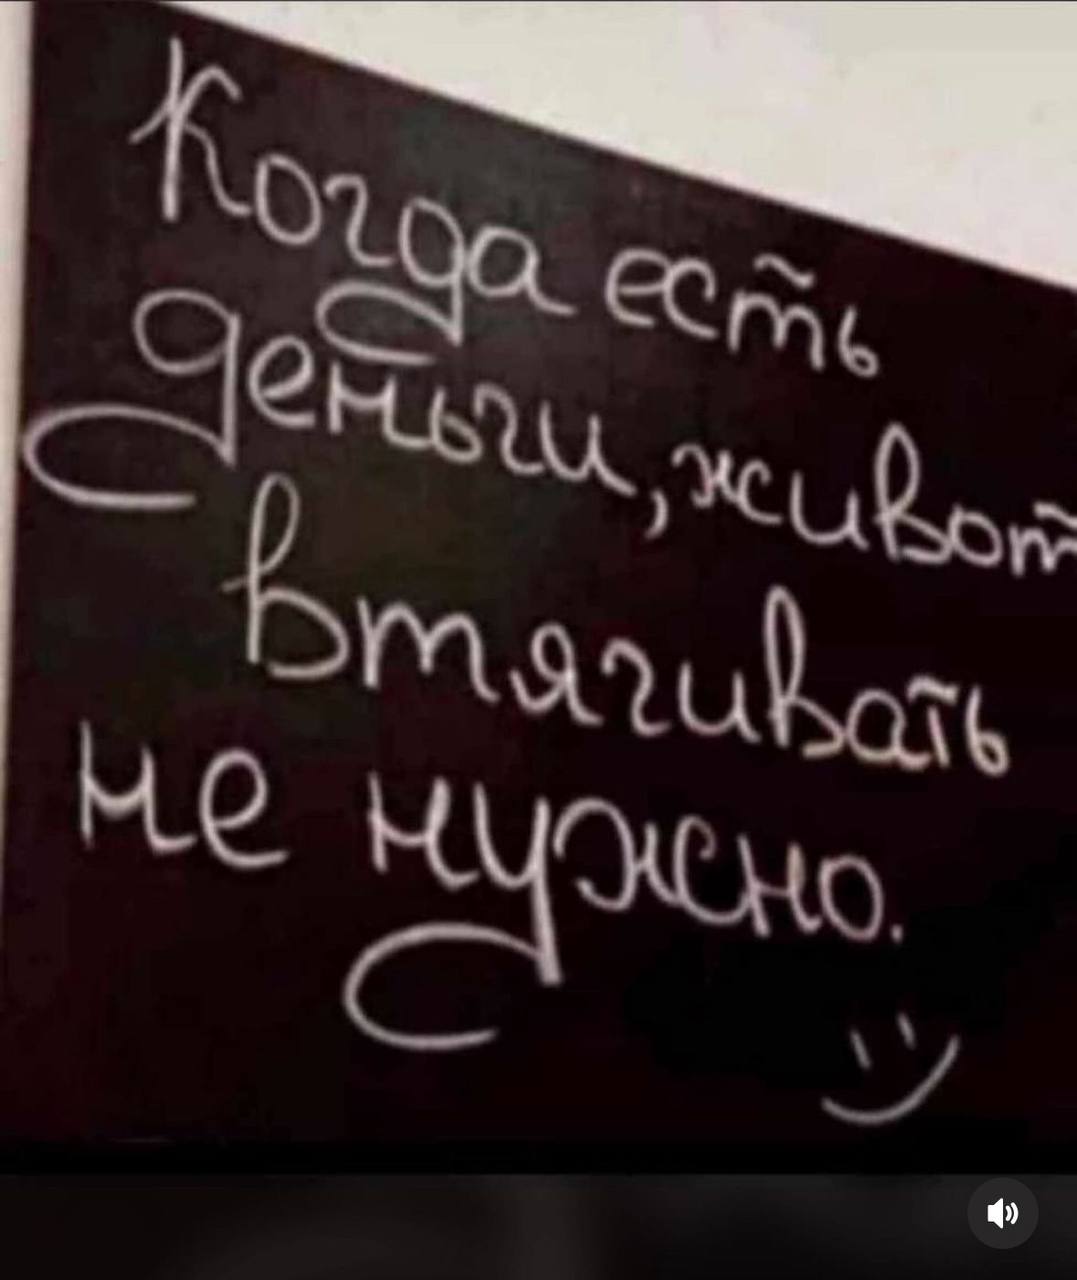 Когда есть
деньги, живот
втягивать
не нужно.